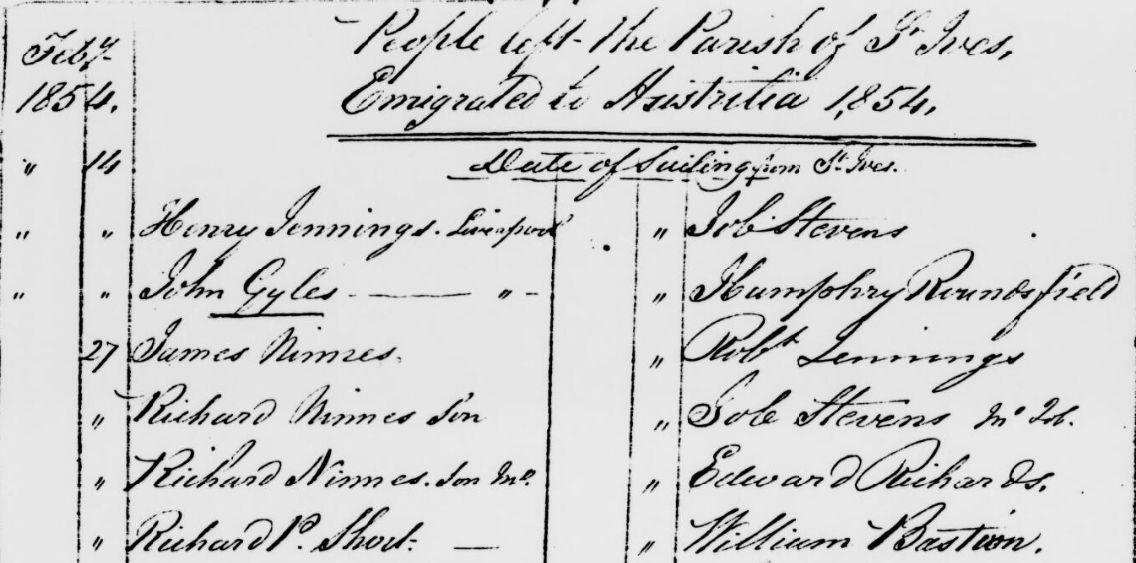 Feby People left the Parish of St Ives,
1854. Emigrated to Austrilia 1,854,
" 14 Date of Sailing from St Ives.
" " Henry Jennings. Liverpool " Job Stevens
" " John Gyles — " - " Humphry Roundsfield
27 James Ninnes. " Robt Jennings
" Richard Ninnes Son " Job Stevens
" Richard Ninnes. Son " Edward Richards.
" Richard P. Short — " William Bastion.